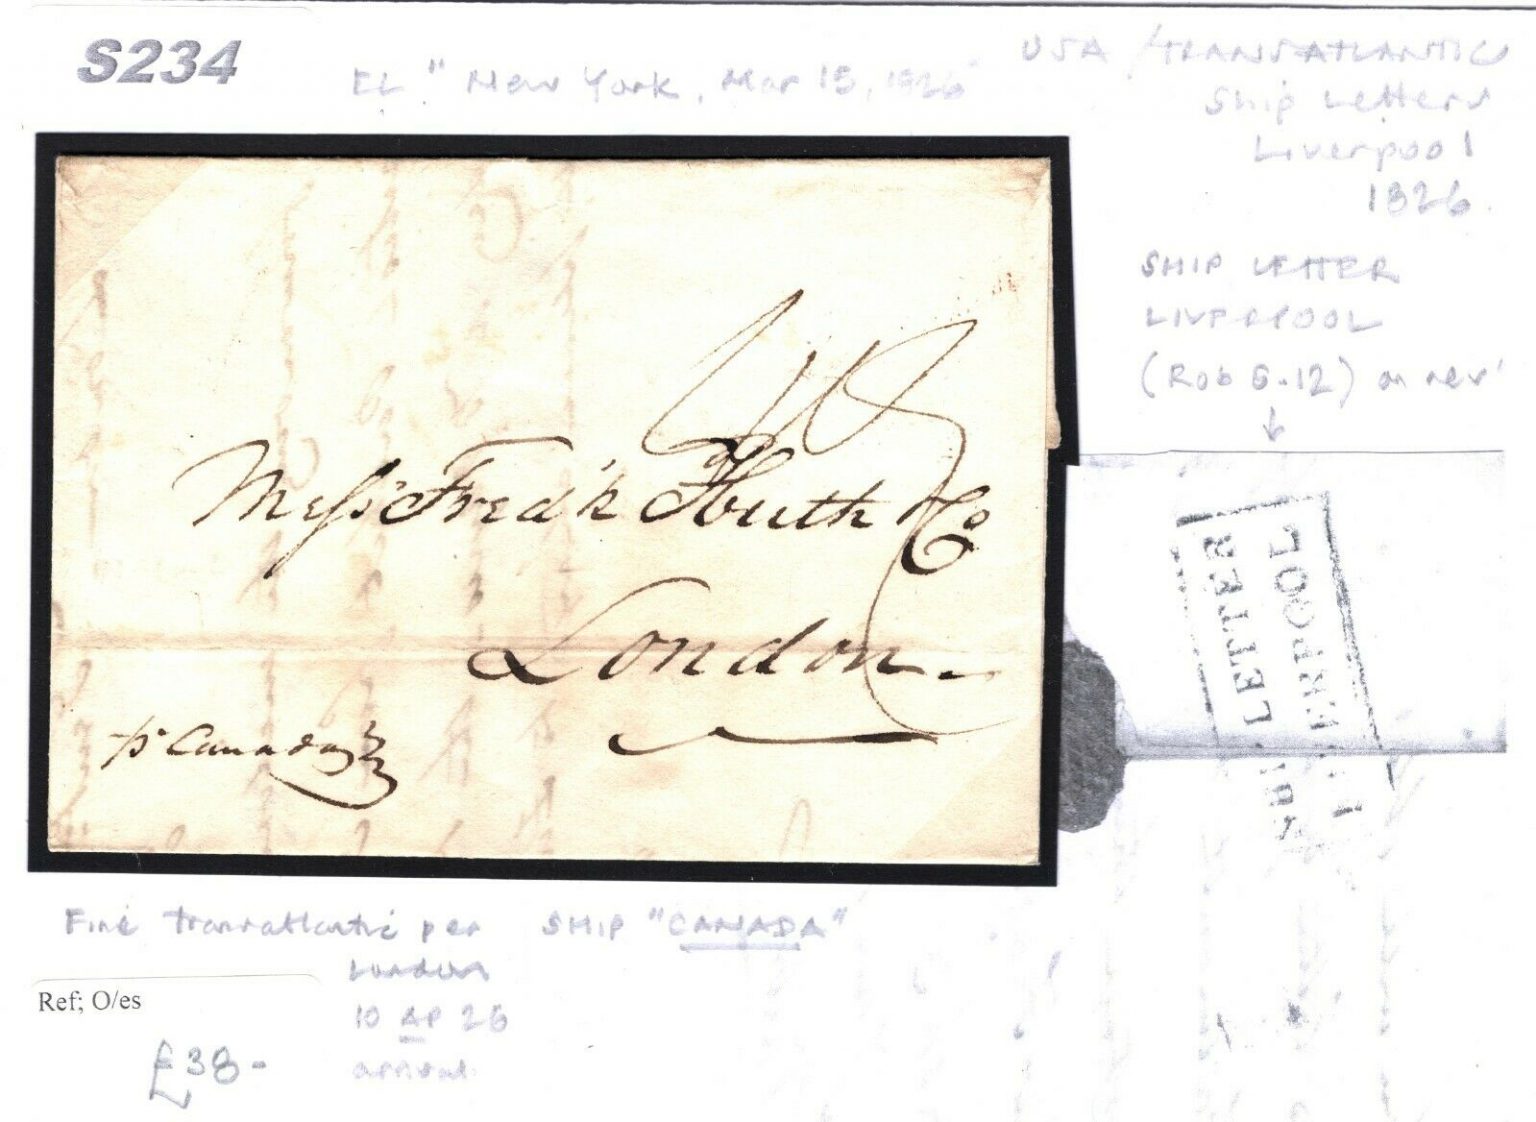 S234
EL "New York, Mar 15, 1826"
USA / TRANSATLANTIC
Ship Letters
Liverpool
1826.
SHIP LETTER
LIVERPOOL
(Rob S.12) on rev'
Messrs Fred'k Huth & Co
London
pr Canada
SHIP LETTER
LIVERPOOL
Fine transatlantic per SHIP "CANADA"
London
10 AP 26
arrival
Ref; O/es
£38-